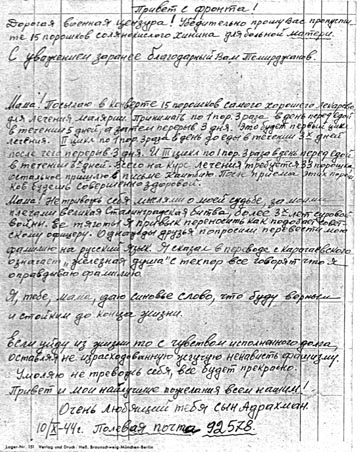 Привет с фронта!
Дорогая военная цензура! Убедительно прошу Вас пропусти-
те 15 порошков солянокислого хинина для больной матери.
С уважением заранее благодарный Вам Темирджанов.
Мама! Посылаю в конверте 15 порошков самого хорошего лекарства
для лечения малярии. Принимать по 1 пор. 3 раза в день перед едой
в течении 5 дней, а затем перерыв 3 дня. Это будет первый цикл
лечения. II цикл по 1 пор. 3 раза в день до еди в течении 3х дней
после чего перерыв 3 дня. И III цикл по 1 пор. 3 раза в день перед едой
в течении 3х дней. Всего на курс лечения требуется 33 порошка
остальное пришлю в письме После приема этих порош-
ков будешь совершенно здоровой.
Мама! Не тревожь себя мыслями о моей судьбе, за моими
плечами великая Сталинградская битва, более 3х лет суровой
войни. Ее тяготы я привык переносить как подобает совет-
скому офицеру. Однажды друзья попросили перевести мою
фамилию на русский язык. Я сказал в переводе с карачаевского
означает „железная душа" с тех пор все говорят что я
оправдываю фамилию.
Я, тебе, мама, даю сыновье слово, что буду верным
и стойким до конца жизни.
Если уйду из жизни то с чувством исполненного долга,
оставляя не израсходованную жгучую ненависть фашизму.
Умоляю не тревожь себя, все будет прекрасно.
Привет и мои наилучшие пожелания всем нашим!
Очень любящий тебя сын Адрахман.
10/X-44г. Полевая почта 92578.
Lager-Nr. 151 Verlag und Druck: Braunschweig-München-Berlin